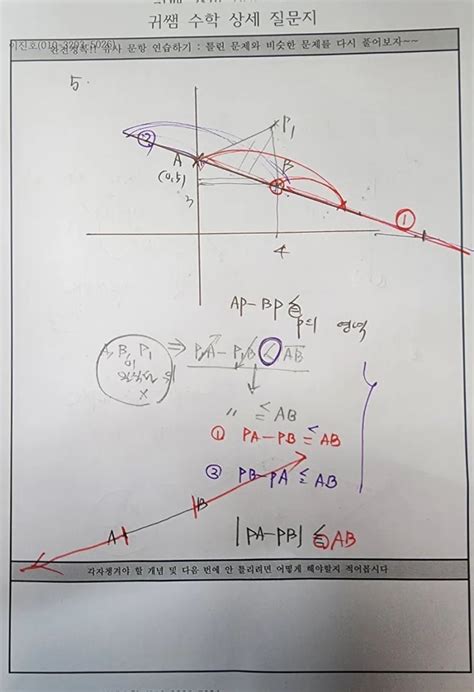 귀쌤 수학 상세 질문지
이진호(010-3203-5026)
완전정복!! 유사 문항 연습하기 : 틀린 문제와 비슷한 문제를 다시 풀어보자~~
5.
②
P₁
A
B
(0,5)
3
①
4
AP-BP ≤
P의 영역
A, B, P₁
X
⇒ PA - P₁B < AB
〃 ≤ AB
① PA-PB ≤ AB
② PB-PA ≤ AB
B
A
|PA-PB| ≤ AB
각자챙겨야 할 개념 및 다음 번에 안 틀리려면 어떻게 해야할지 적어봅시다